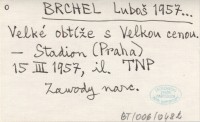 o BRCHEL Luboš 1957...
Velké obtíže s Velkou cenou.
— Stadion (Praha)
15 III 1957, il. TNP
Zawody narc.
BT/006/0482